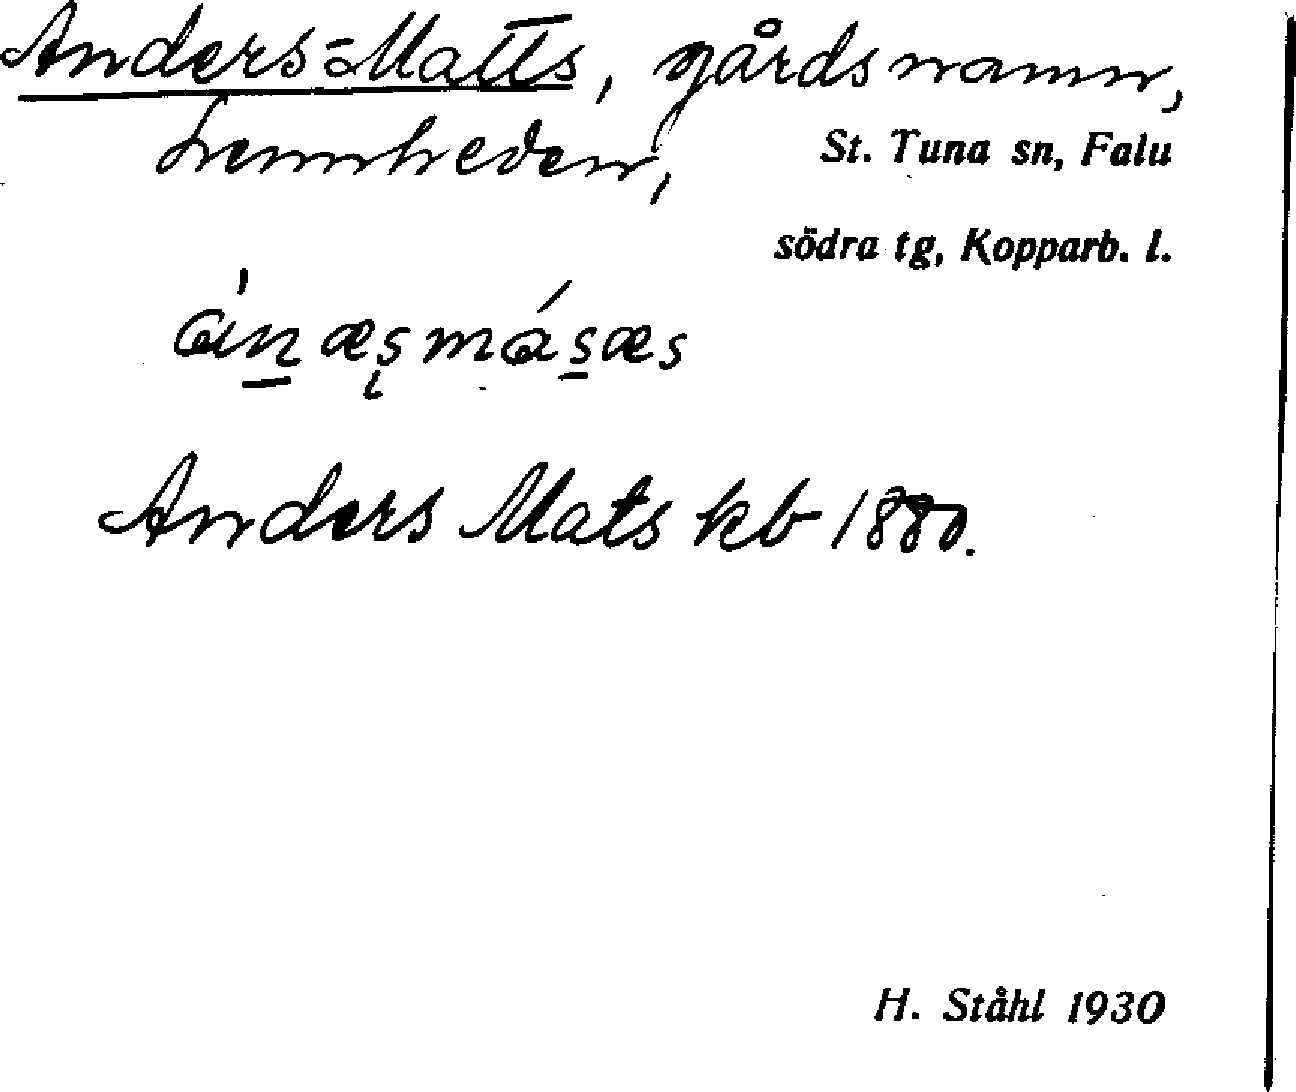 Anders-Matts, gårdsnamn,
Lennheden, St. Tuna sn, Falu
södra tg, Kopparb. l.
Anders Mats kb 1880.
H. Ståhl 1930